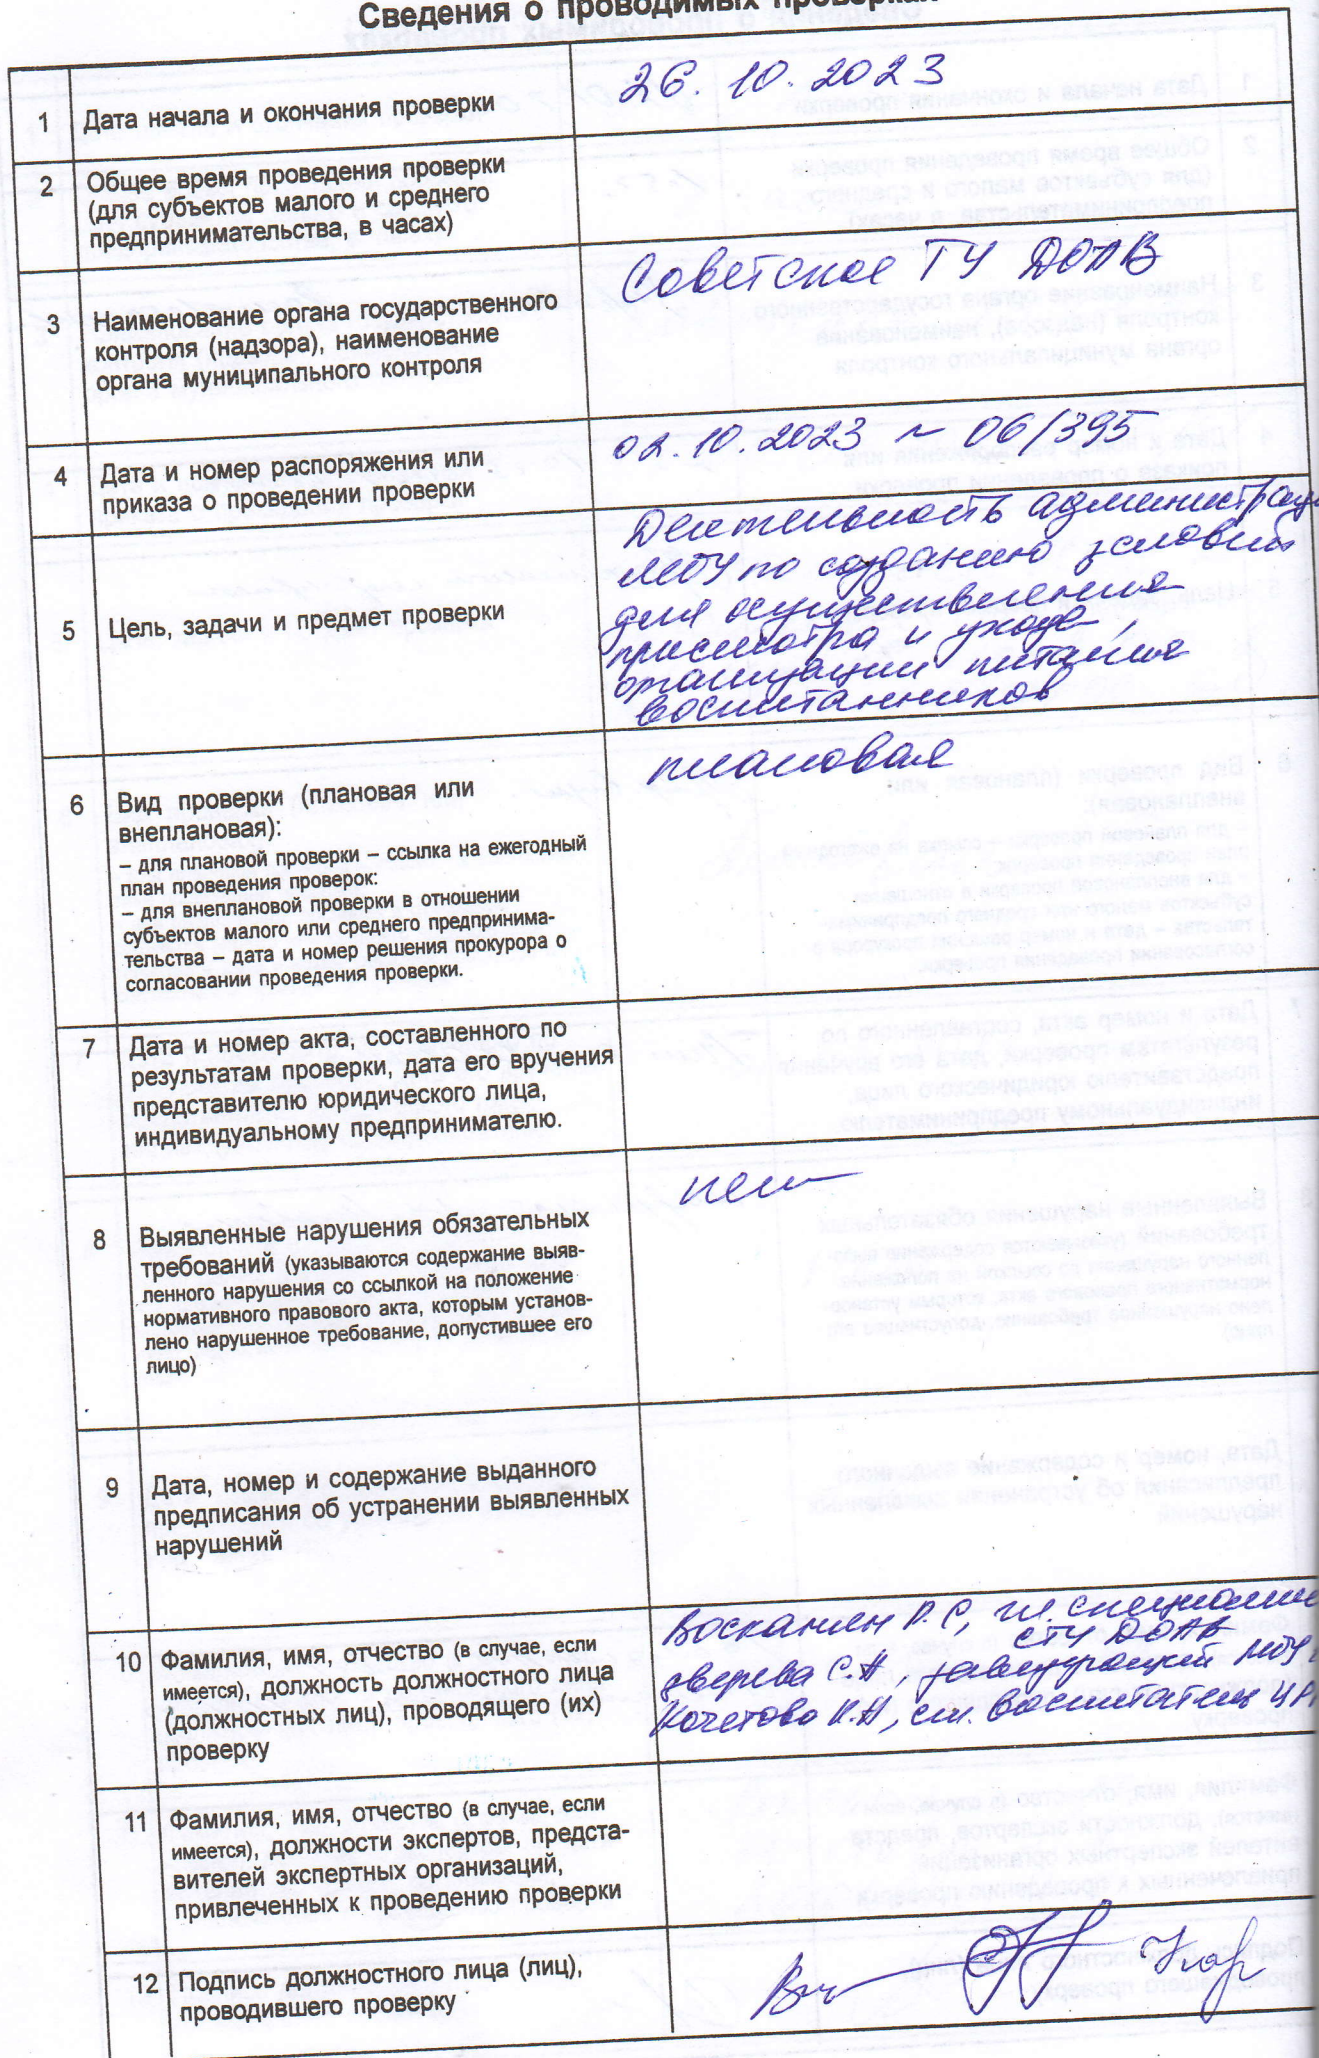 Сведения о проводимых проверках
1 Дата начала и окончания проверки
26. 10. 2023
2 Общее время проведения проверки
(для субъектов малого и среднего
предпринимательства, в часах)
3 Наименование органа государственного
контроля (надзора), наименование
органа муниципального контроля
Советское ТУ ДОАВ
4 Дата и номер распоряжения или
приказа о проведении проверки
02.10.2023 № 06/395
5 Цель, задачи и предмет проверки
Деятельность администрац
МОУ по созданию условий
для осуществления
присмотра и ухода,
организации питания
воспитанников
6 Вид проверки (плановая или
внеплановая):
– для плановой проверки – ссылка на ежегодный
план проведения проверок:
– для внеплановой проверки в отношении
субъектов малого или среднего предпринима-
тельства – дата и номер решения прокурора о
согласовании проведения проверки.
плановая
7 Дата и номер акта, составленного по
результатам проверки, дата его вручения
представителю юридического лица,
индивидуальному предпринимателю.
8 Выявленные нарушения обязательных
требований (указываются содержание выяв-
ленного нарушения со ссылкой на положение
нормативного правового акта, которым установ-
лено нарушенное требование, допустившее его
лицо)
нет
9 Дата, номер и содержание выданного
предписания об устранении выявленных
нарушений
10 Фамилия, имя, отчество (в случае, если
имеется), должность должностного лица
(должностных лиц), проводящего (их)
проверку
Восканян Р.С, гл. специалис
СТУ ДОАВ
Зверева С.А, заведующий МОУ
Кочетова И.А, ст. воспитатель
11 Фамилия, имя, отчество (в случае, если
имеется), должности экспертов, предста-
вителей экспертных организаций,
привлеченных к проведению проверки
12 Подпись должностного лица (лиц),
проводившего проверку